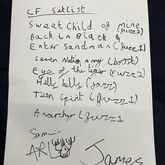 CF Setlist
Sweet Child of mine (fuzz2)
Back in Black
Enter Sandman (fuzz1)
seven nation army (boost)
Eye of the tiger (fuzz2)
Hells bells (fuzz)
Teen spirit (fuzz1)
Anarchy (fuzz1
Sam
James